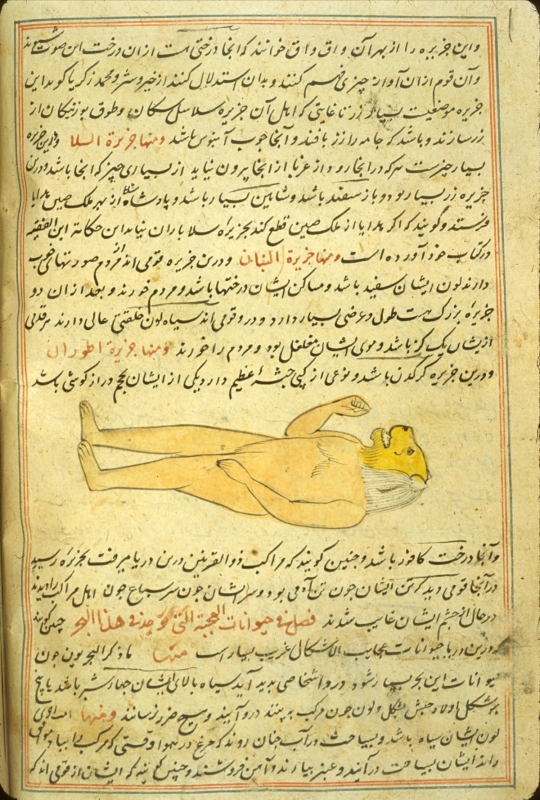 واین جزیره را از بهر آن واق واق خوانند که آنجا درختی هست از ان درخت این صوت
وآن قوم از آن آواز چیزی فهم کنند وبدان استدلال کنند از خیر وشر ومحمد زکریا کوید این
جزیره موضعیست بسیار زر تا غایتی که اهل آن جزیره سلاسل سکان وطوق بوزنیکان از
زر سازند وباشد که جامه را از زر بافند وآنجا چوب آبنوس باشد ومنها جزیرة السلا واین جزیره
بسیار چیزست هر که در آنجا رود از غربا از آنجا بیرون نیاید از بسیاری چیز که آنجا باشد ودرین
جزیره زر بسیار بود وباز سفید باشد وشاهین بسیار باشد وپادشاه از بهر ملک چین هدایا
فرستد وکویند که اکر هدایا از ملک چین قطع کند بجزیره سلا باران نیاید این حکایة ابن الفقیه
در کتاب خود آورده است ومنها جزیرة البنان ودرین جزیره قومی اند
دارند لون ایشان سفید باشد ومساکن ایشان درختها باشد ومردم خورند وبعد از ان دو
جزیره بزرک است طول وعرضی بسیار دارد ودرو قومی اند سیاه لون خلقتی عالی دارند
ازیشان یک کز باشد وموی ایشان مفلفل بود ومردم را خورند ومنها جزیرة اطوران
ودرین جزیره کرکدن باشد ونوعی از کپی جثهٔ عظیم دارد یکی از ایشان
وآنجا درخت کافور باشد وچنین کویند که مراکب ذو القرنین درین دریا میرفت بجزیره رسید
در آنجا قومی دید که تن ایشان چون تن آدمی بود وسر ایشان چون سر سباع چون اهل مراکب را دیدند
در حال از چشم ایشان غایب شدند فصل فی حیوانات العجیبة التی توجد فی هذا البحر چنین کویند
که درین دریا حیوانات عجایب الاشکال غریب بسیار است منها ما ذکر البحریون چون
حیوانات این بحر بسیار شود درو اشخاصی پدید آید سیاه بالای ایشان چهار شبر باشد یا پنج
بر شکل اولاد حبش بشکل ولون چون مرکب بینند درو آیند وهیچ ضرر نرسانند ومنها
لون ایشان سیاه باشد وبسباحت در آب چنان روند که مرغ در هوا وقتی که مرکب
ایشان بسباحت در آیند وعنبر بیارند وآهن فروشند وچنین کویند که ایشان از قومی اند که